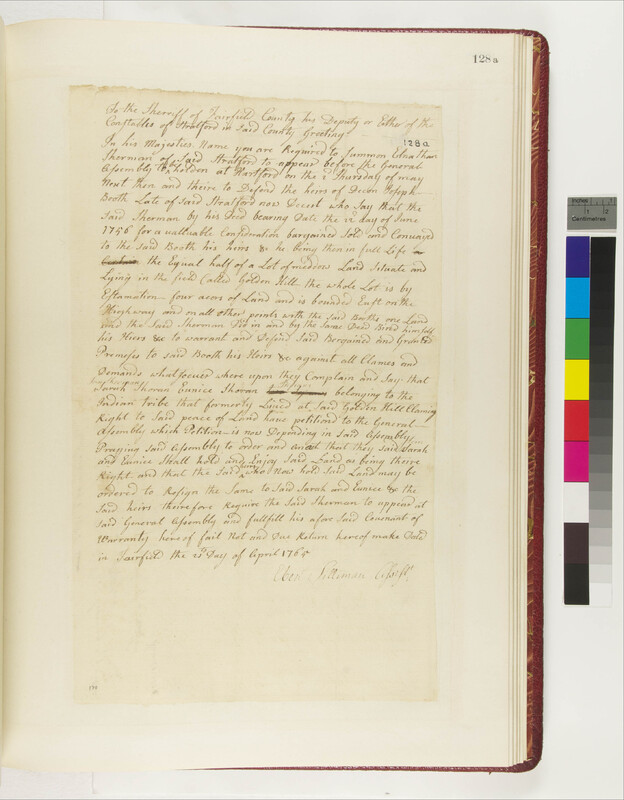 128a
To the Sherriff of Fairfield County his Deputy or Either of the
Constables of Stratford in Said County Greeting
128a
In his Majesties Name you are Required to Summon Elnathan
Sherman of Said Stratford to appear before the General
Assembly to be holden at Hartford on the 2d Thursday of may
Next then and theire to Defend the heirs of Decon Joseph
Booth Late of Said Stratford now Decest who Say that the
Said Sherman by his Deed bearing Date the day of June
1756 for a valluable Consideration bargained Sold and Conveaed
to the Said Booth his heirs &c he being then in full Life
the Equal half of a Lot of medow Land Situate and
Lying in the feild Called Golden Hill the whole Lot is by
Estamation four acers of Land and is bounded East on the
Highway and on all other points with the Said Booths one Land
and the Said Sherman Did in and by the Same Deed Bind himself
his Heirs &c to warrant and Defend Said Bergained and Granted
Premeses to said Booth his Heirs &c against all Clames and
Demands whatsoever where upon they Complain and Say that
Sarah Shoran Eunice Shoran belonging to the
Indian Tribe that formerly Lived at Said Golden Hill Claiming
Right to Said peace of Land have petitiond to the General
Assembly which Petition is now Depending in Said Assembly
Praying Said Assembly to order and that they Said Sarah
and Eunice Shall hold and Enjoy Said Land as being theire
Right and that the Said heirs who Now hold Said Land may be
ordered to Resign the Same to Said Sarah and Eunice & the
Said heirs therefore Require the Said Sherman to appear at
Said General Assembly and fullfill his afore Said Covenant of
Warranty here of fail Not and Due Return hereof make Dated
in Fairfield the Day of April 1765
Silliman Assist
Inches
Centimetres